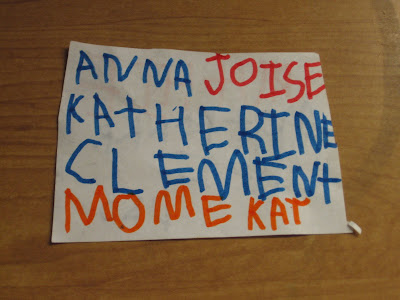 ANNA JOISE
KATHERINE
CLEMENT
MOME KAT